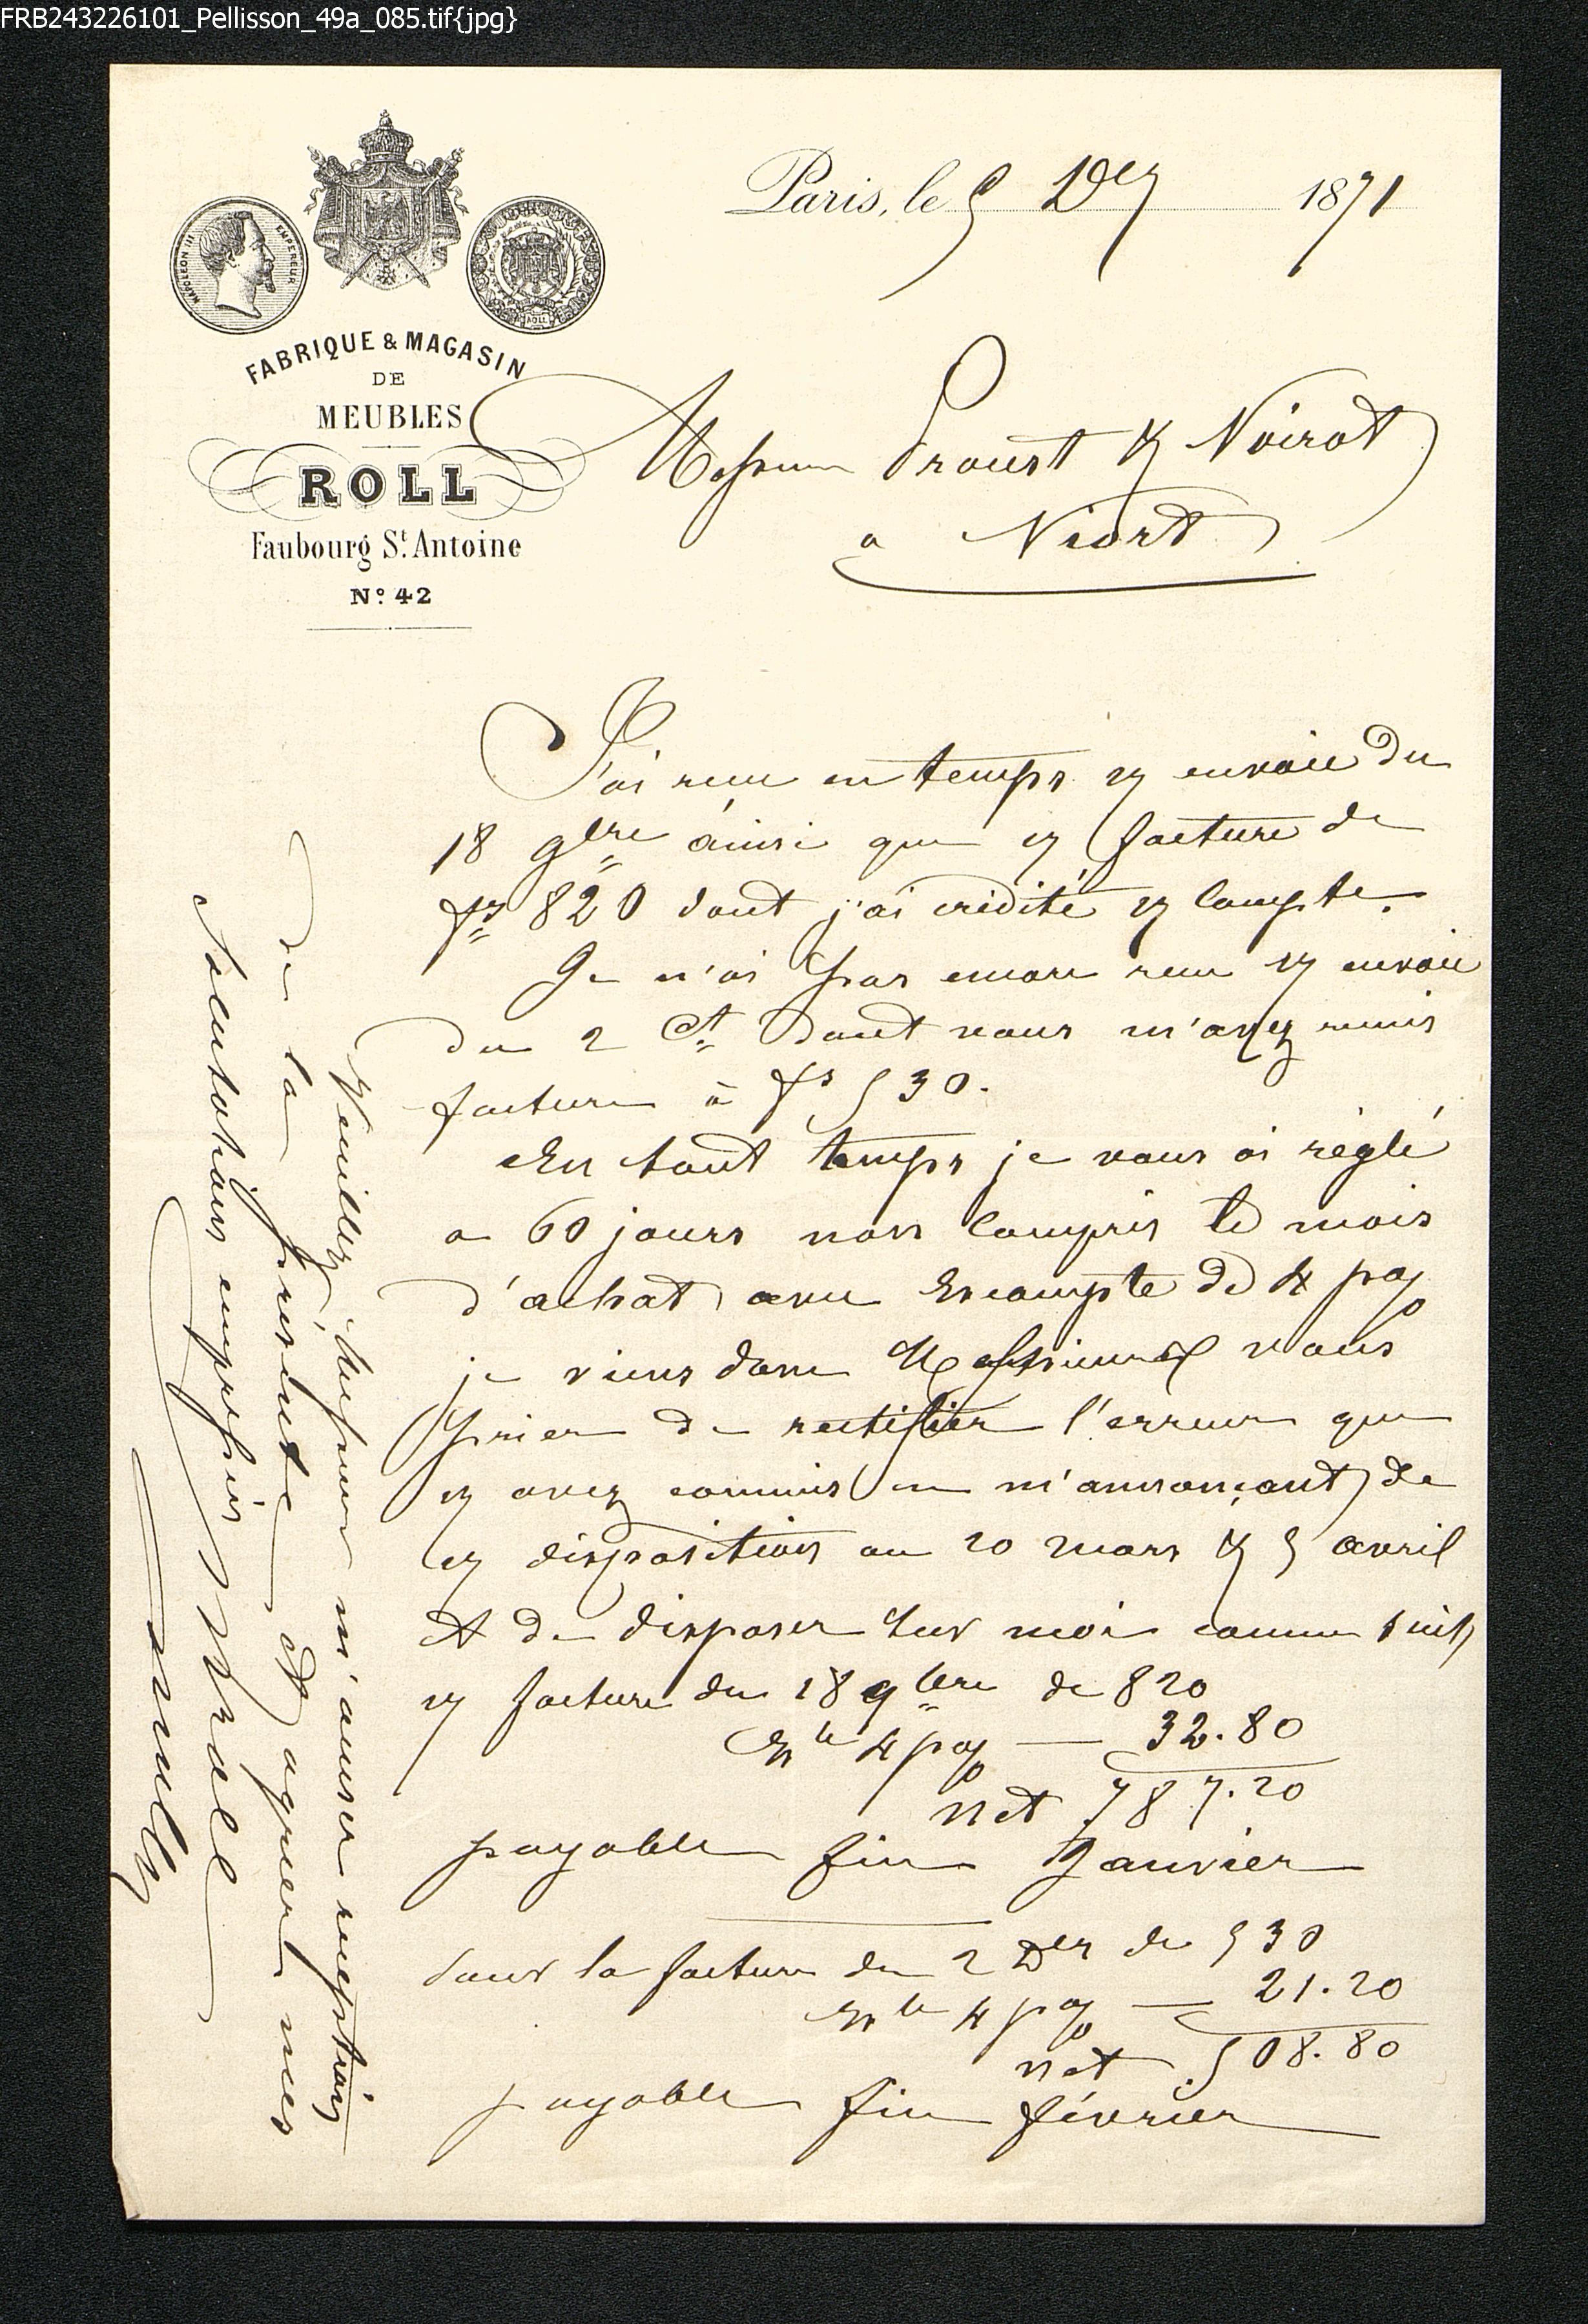 FRB243226101_Pellisson_49a_085.tif{jpg}
NAPOLEON III EMPEREUR
FABRIQUE & MAGASIN
DE
MEUBLES
ROLL
Faubourg St. Antoine
No. 42
Paris, le 5 Der 1871
Messieurs Proust & Noirot
a Niort
J'ai reçu en temps vs envoie du
18 9bre ainsi que vs facture de
frs 820 dont j'ai crédité vs compte.
Je n'ai pas encore reçu vs envoie
du 2 Ct dont vous m'avez remis
facture à frs 530.
En tout temps je vous ai réglé
a 60 jours non compris le mois
d'achat avec Escompte de 4 p%
je viens donc Messieurs vous
prier de rectifier l'erreur que
vs avez commis en m'annonçant de
vs dispositions au 20 mars & 5 avril
et de disposer sur moi comme suit
vs facture du 18 9bre de 820
Ete 4 p% — 32.80
net 787.20
payable fin Janvier
pour la facture du 2 Der de 530
Ete 4 p% — 21.20
net 508.80
payable fin février
Veuillez, Messieurs m'accuser reception
de la présente et agréer mes
Salutations empressées
Roll